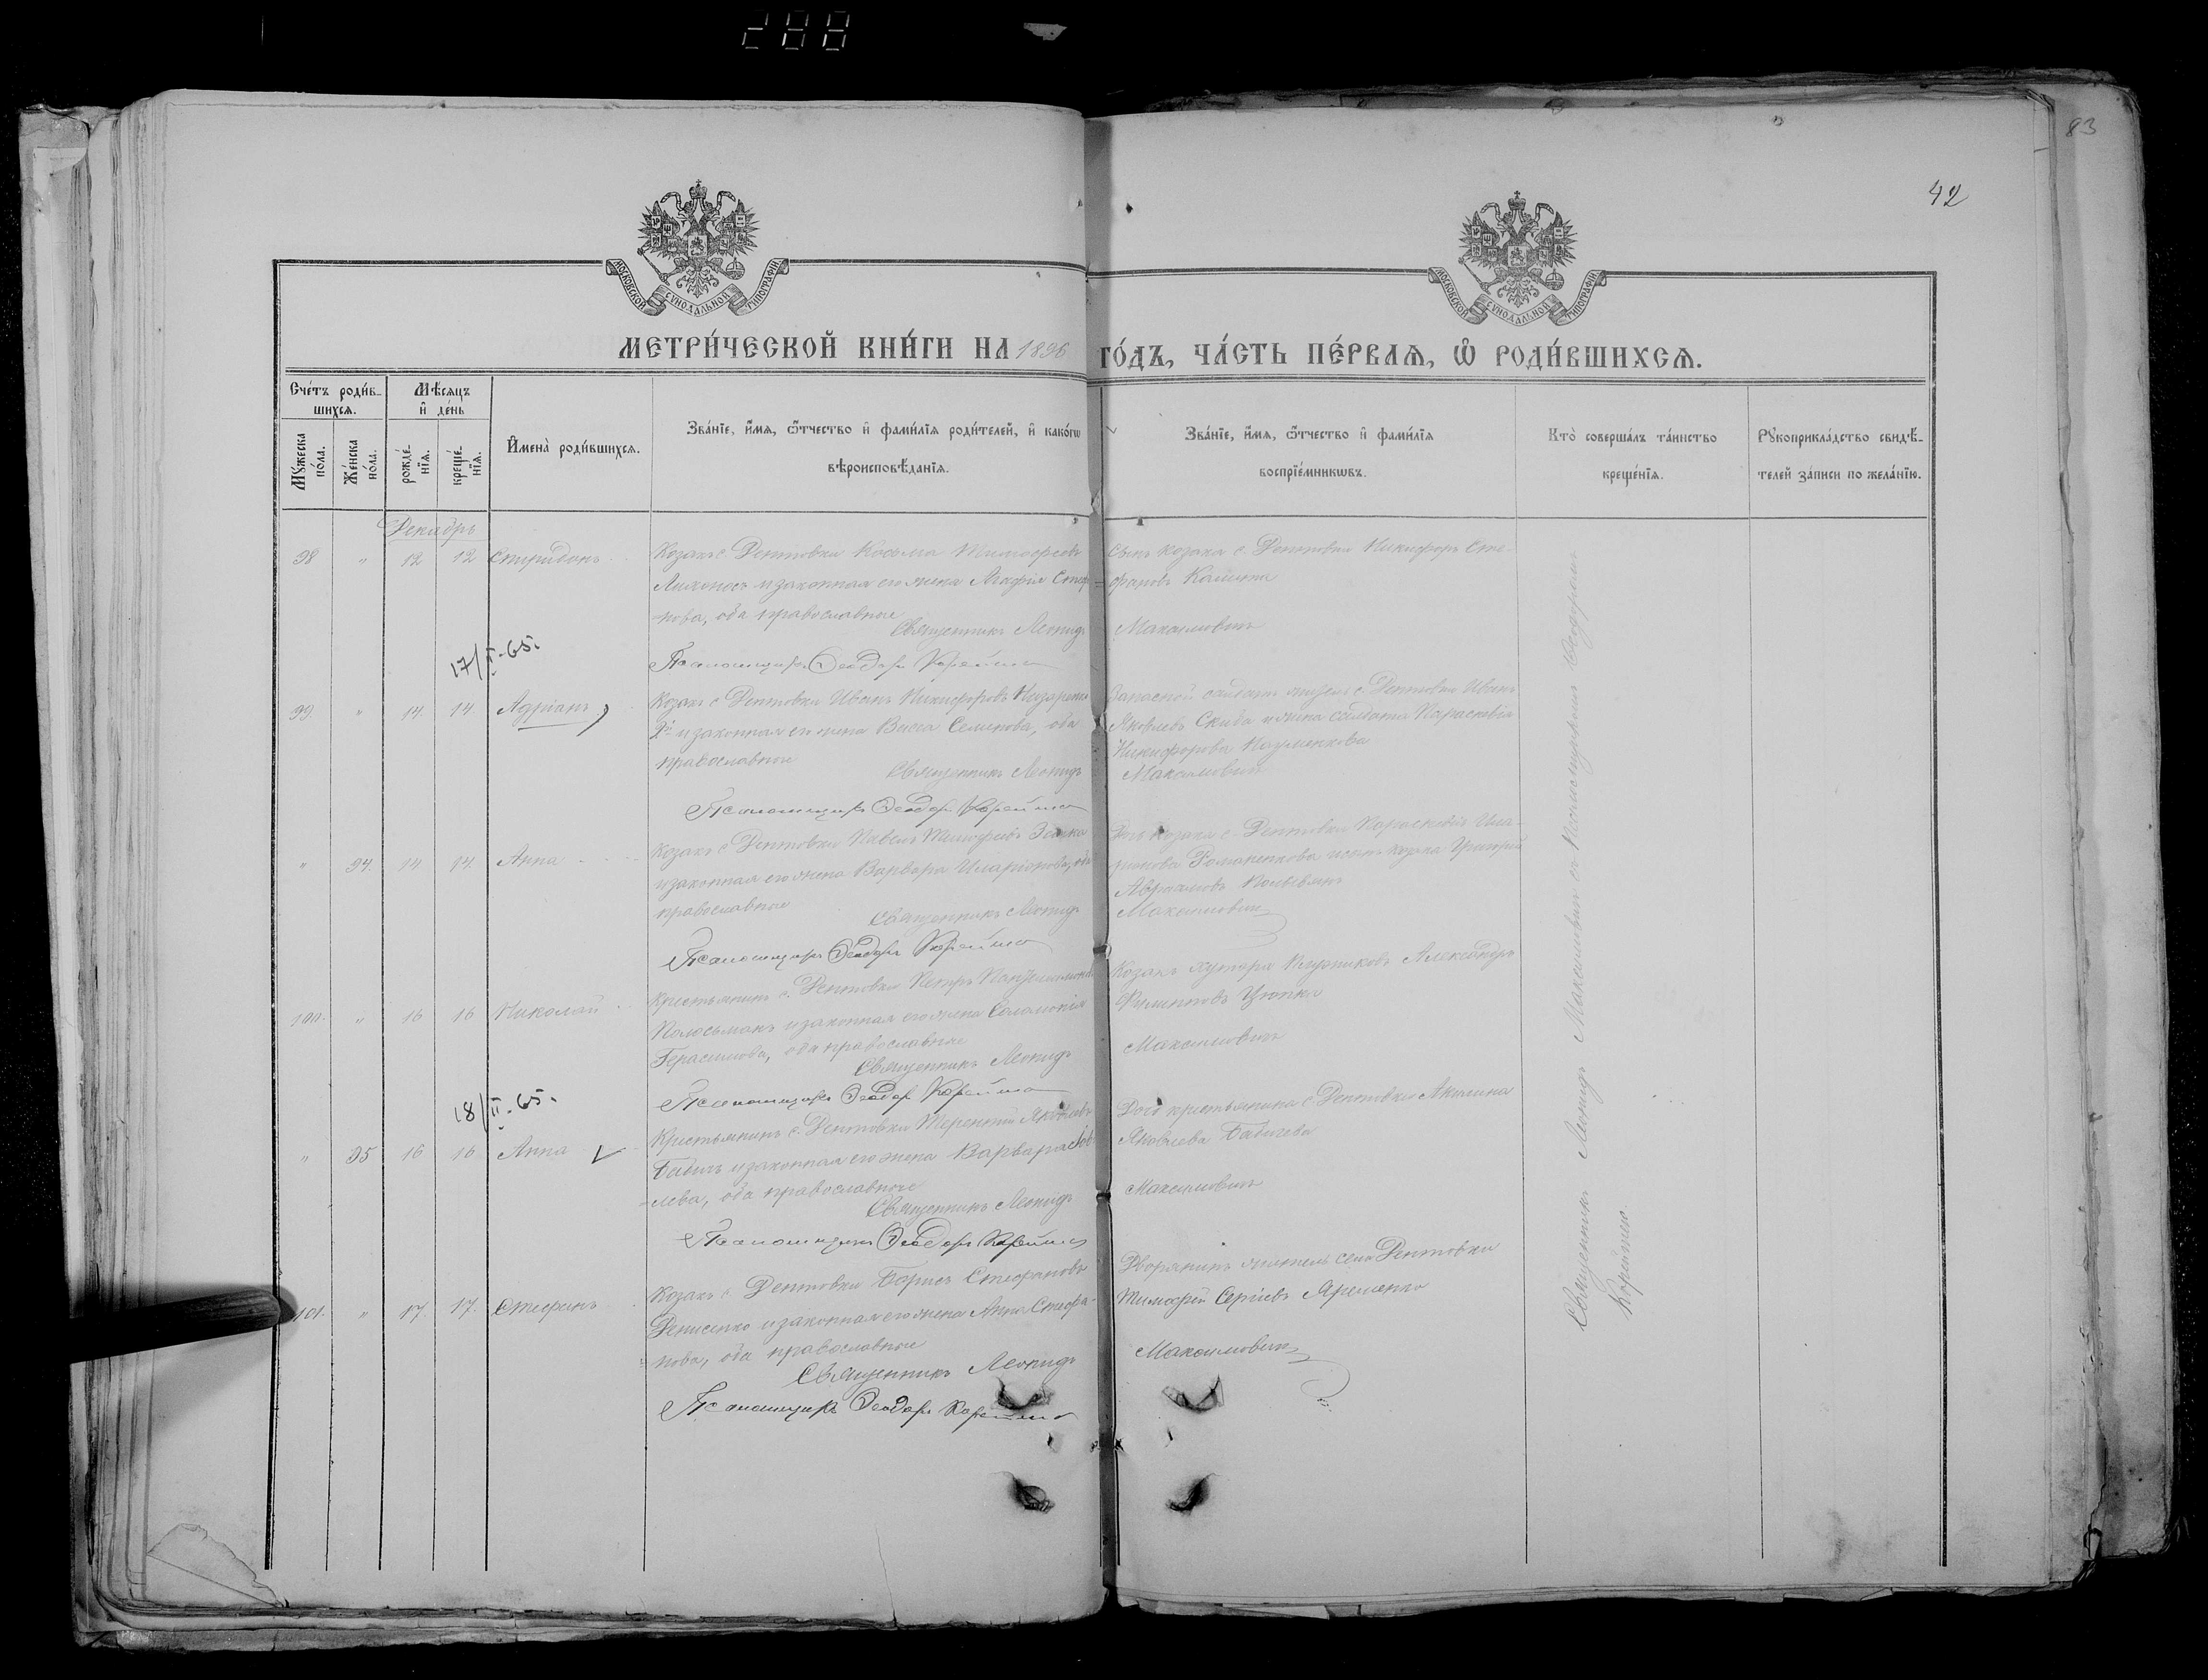 288
83
42
МОСКОВСКОЙ СѴНОДАЛЬНОЙ ТИПОГРАФІИ
МОСКОВСКОЙ СѴНОДАЛЬНОЙ ТИПОГРАФІИ
МЕТРИ́ЧЕСКОЙ КНИ́ГИ НА 1896 ГО́ДЪ, ЧА́СТЬ ПЕ́РВАѦ, Ѡ РОДИ́ВШИХСѦ.
Сче́тъ роди́в-
шихсѧ.
Мꙋ́жеска
по́ла.
Же́нска
по́ла.
Мѣ́сѧцъ
и҆ де́нь
рожде́-
нїѧ.
креще́-
нїѧ.
И҆мена̀ роди́вшихсѧ.
Зва́нїе, и҆́мѧ, ѻ҆́тчество и҆ фами́лїѧ роди́телей, и҆ како́гѡ
вѣроисповѣ́данїѧ.
Зва́нїе, и҆́мѧ, ѻ҆́тчество и҆ фами́лїѧ
воспрїе́мникѡвъ.
Кто̀ соверша́лъ та́инство
креще́нїѧ.
Рꙋкоприкла́дство свидѣ́-
телей за́писи по жела́нїю.
Декабрь
98 " 12 12 Спиридонъ
Козакъ с. Дептовки Косьма Тимофеевъ
и законная его жена Агафія Стефа
нова, оба православные
Священникъ Леонидъ
Псаломщикъ Ѳеодоръ Корейша
Сынъ козака с. Дептовки Никифоръ Сте-
фановъ Калина
Максимовичъ
17/II-65.
99 " 14 14 Адріанъ
Козакъ с. Дептовки Иванъ Никифоровъ Назаренко
2й и законная его жена Васса Семенова, оба
православные
Священникъ Леонидъ
Псаломщикъ Ѳеодоръ Корейша
Запасной солдатъ с. Дептовки Иванъ
Яковлевъ Скиба и жена солдата Параскевія
Никифорова Науменкова
Максимовичъ
" 94 14 14 Анна
Козакъ с. Дептовки Павелъ Тимофеевъ Заика
и законная его жена Варвара Иларіонова, оба
православные
Священникъ Леонидъ
Псаломщикъ Ѳеодоръ Корейша
Дочь козака с. Дептовки Параскевія Ила-
ріонова Романенкова и сынъ козака Григорій
Авраамовъ
Максимовичъ
100 " 16 16 Николай
Крестьянинъ с. Дептовки Петръ Пантелеимоновъ
и законная его жена Соломонія
Герасимова, оба православные
Священникъ Леонидъ
Псаломщикъ Ѳеодоръ Корейша
Козакъ хутора Александръ
Филипповъ Цюпка
Максимовичъ
18/II-65.
" 95 16 16 Анна
Крестьянинъ с. Дептовки Терентій Яковлевъ
Бабичъ и законная его жена Варвара
лева, оба православные
Священникъ Леонидъ
Псаломщикъ Ѳеодоръ Корейша
Дочь крестьянина с. Дептовки Акилина
Яковлева Бабичева
Максимовичъ
101 " 17 17 Стефанъ
Козакъ с. Дептовки Борисъ Стефановъ
Денисенко и законная его жена Анна Стефа-
нова, оба православные
Священникъ Леонидъ
Псаломщикъ Ѳеодоръ Корейша
Дворянинъ житель села Дептовки
Тимофей Сергіевъ Яременко
Максимовичъ
Священникъ Леонидъ Максимовичъ съ Псаломщикомъ Ѳеодоромъ
Корейшею.